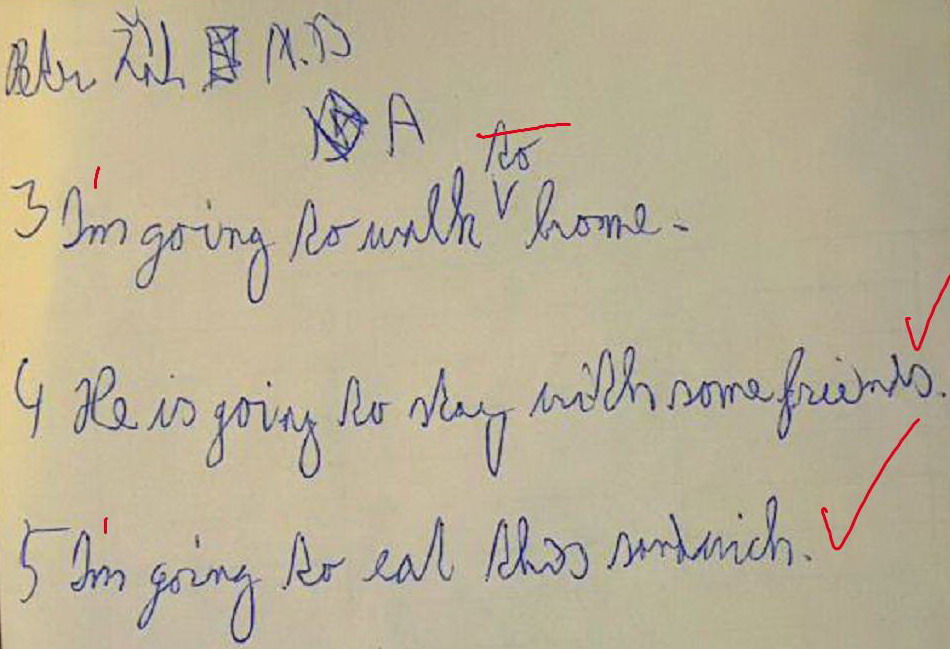 Peter
A
to
3 I'm going to walk home.
4 He is going to stay with some friends.
5 I'm going to eat this sandwich.